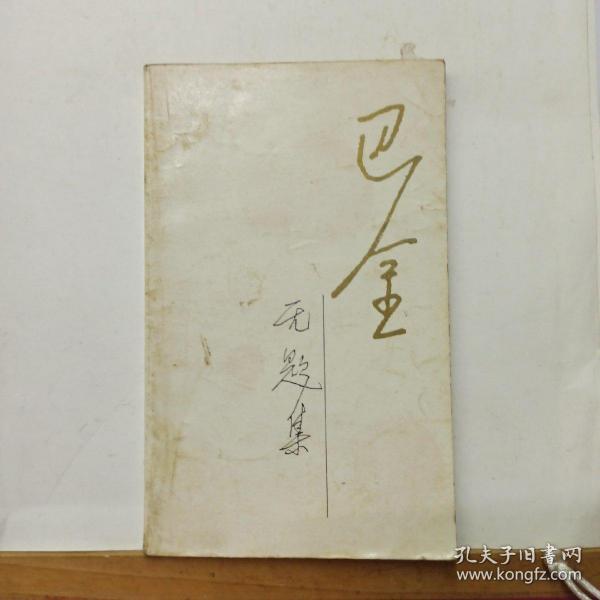 巴金
无题集
孔夫子旧書网
www.kongfz.com